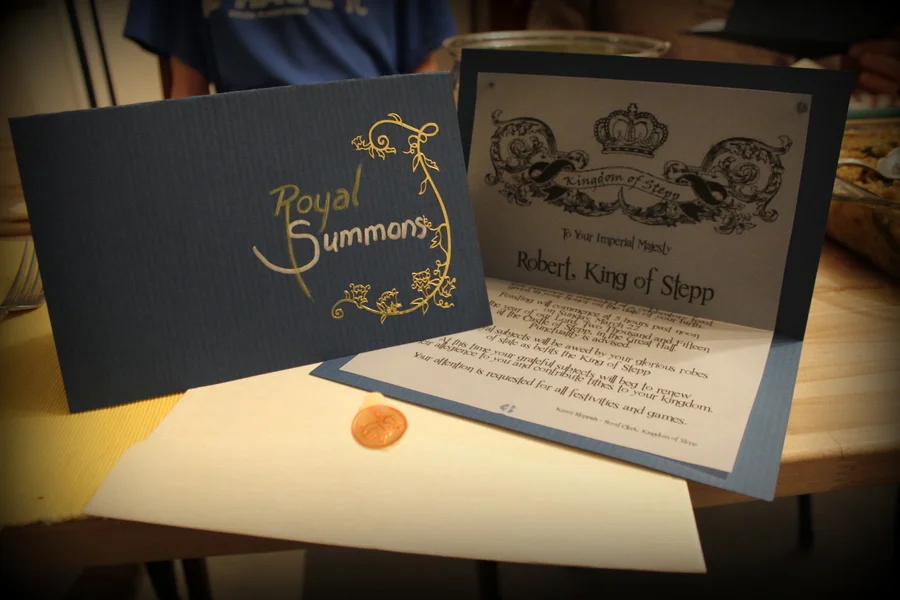 Royal
Summons
Kingdom of Stepp
To Your Imperial Majesty
Robert, King of Stepp
Feasting will commence at 5 hours past noon
on Sunday, March 22
the year of our Lord, Two Thousand and Fifteen
at the Castle of Stepp, in the Great Hall.
Punctuality is advised.
subjects will be awed by your glorious robes
of state as befits the King of Stepp
At this time your grateful subjects will beg to renew
their allegience to you and contribute tithes to your kingdom.
Your attention is requested for all festivities and games.
Royal Clerk, Kingdom of Stepp